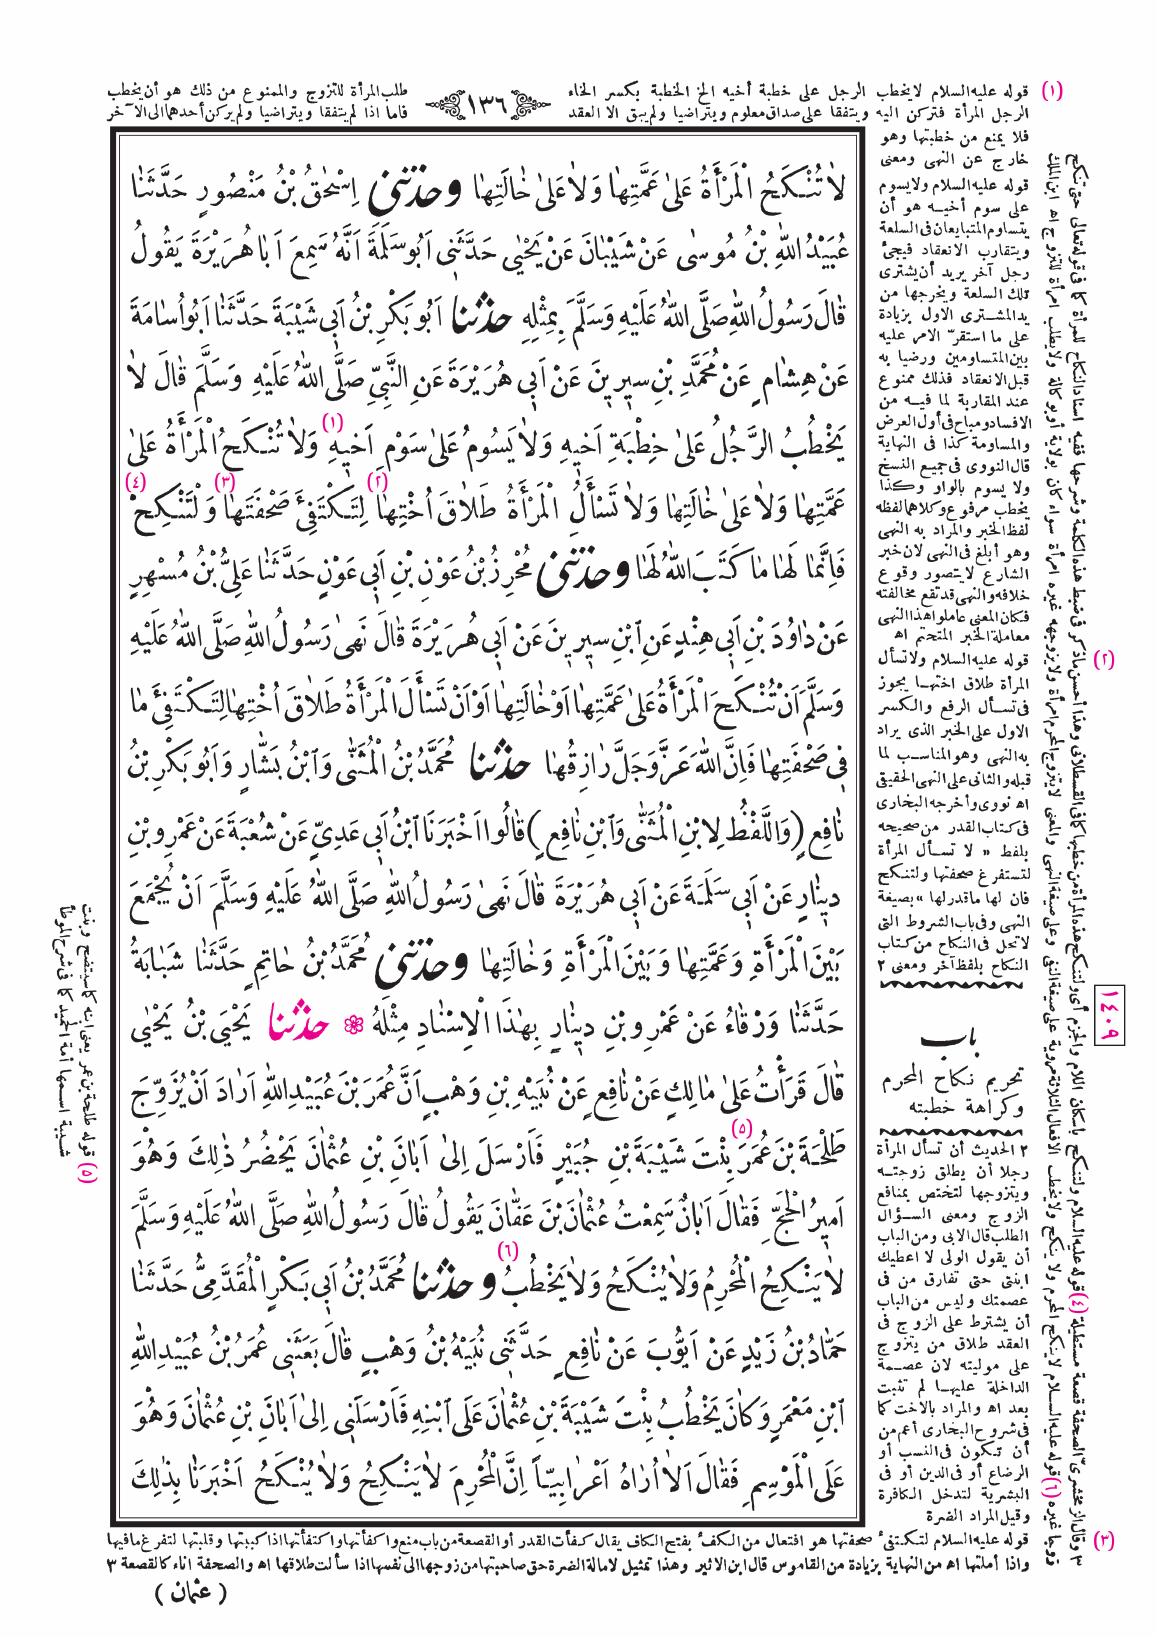 (١) قوله عليه السلام لا يخطب الرجل على خطبة أخيه الخ الخطبة بكسر الخاء طلب المرأة للتزوج والممنوع من ذلك هو أن يخطب
الرجل المرأة فتركن اليه ويتفقا على صداق معلوم ويتراضيا ولم يبق الا العقد فاما اذا لم يتفقا ويتراضيا ولم يركن أحدهما الى الآخر
١٣٦
لَا تُنْكَحُ الْمَرْأَةُ عَلَىٰ عَمَّتِهَا وَلَا عَلَىٰ خَالَتِهَا وحدثنى اِسْحٰقُ بْنُ مَنْصُورٍ حَدَّثَنَا
عُبَيْدُاللّٰهِ بْنُ مُوسٰى عَنْ شَيْبَانَ عَنْ يَحْيٰى حَدَّثَنِى اَبُوسَلَمَةَ اَنَّهُ سَمِعَ اَبَا هُرَيْرَةَ يَقُولُ
قَالَ رَسُولُ اللّٰهِ صَلَّى اللّٰهُ عَلَيْهِ وَسَلَّمَ بِمِثْلِهِ حدثنا اَبُو بَكْرِ بْنُ اَبِى شَيْبَةَ حَدَّثَنَا اَبُو اُسَامَةَ
عَنْ هِشَامٍ عَنْ مُحَمَّدِ بْنِ سِيرِينَ عَنْ اَبِى هُرَيْرَةَ عَنِ النَّبِيِّ صَلَّى اللّٰهُ عَلَيْهِ وَسَلَّمَ قَالَ لَا
يَخْطُبُ الرَّجُلُ عَلَىٰ خِطْبَةِ اَخِيهِ وَلَا يَسُومُ عَلَىٰ سَوْمِ اَخِيهِ (١) وَلَا تُنْكَحُ الْمَرْأَةُ عَلَىٰ
عَمَّتِهَا وَلَا عَلَىٰ خَالَتِهَا وَلَا تَسْأَلُ الْمَرْأَةُ طَلَاقَ اُخْتِهَا (٢) لِتَكْتَفِئَ صَحْفَتَهَا (٣) وَلْتَنْكِحْ (٤)
فَاِنَّمَا لَهَا مَا كَتَبَ اللّٰهُ لَهَا وحدثنى مُحْرِزُ بْنُ عَوْنِ بْنِ اَبِى عَوْنٍ حَدَّثَنَا عَلِيُّ بْنُ مُسْهِرٍ
عَنْ دَاوُدَ بْنِ اَبِى هِنْدٍ عَنِ ابْنِ سِيرِينَ عَنْ اَبِى هُرَيْرَةَ قَالَ نَهٰى رَسُولُ اللّٰهِ صَلَّى اللّٰهُ عَلَيْهِ
وَسَلَّمَ اَنْ تُنْكَحَ الْمَرْأَةُ عَلَىٰ عَمَّتِهَا اَوْ خَالَتِهَا اَوْ اَنْ تَسْأَلَ الْمَرْأَةُ طَلَاقَ اُخْتِهَا لِتَكْتَفِئَ مَا
فِى صَحْفَتِهَا فَاِنَّ اللّٰهَ عَزَّ وَجَلَّ رَازِقُهَا حدثنا مُحَمَّدُ بْنُ الْمُثَنّٰى وَابْنُ بَشَّارٍ وَاَبُو بَكْرِ بْنُ
نَافِعٍ (وَاللَّفْظُ لِابْنِ الْمُثَنّٰى وَابْنِ نَافِعٍ) قَالُوا اَخْبَرَنَا ابْنُ اَبِى عَدِيٍّ عَنْ شُعْبَةَ عَنْ عَمْرِو بْنِ
دِينَارٍ عَنْ اَبِى سَلَمَةَ عَنْ اَبِى هُرَيْرَةَ قَالَ نَهٰى رَسُولُ اللّٰهِ صَلَّى اللّٰهُ عَلَيْهِ وَسَلَّمَ اَنْ يُجْمَعَ
بَيْنَ الْمَرْأَةِ وَعَمَّتِهَا وَبَيْنَ الْمَرْأَةِ وَخَالَتِهَا وحدثنى مُحَمَّدُ بْنُ حَاتِمٍ حَدَّثَنَا شَبَابَةُ
حَدَّثَنَا وَرْقَاءُ عَنْ عَمْرِو بْنِ دِينَارٍ بِهٰذَا الْاِسْنَادِ مِثْلَهُ ۞ حدثنا يَحْيَى بْنُ يَحْيٰى
قَالَ قَرَأْتُ عَلَىٰ مَالِكٍ عَنْ نَافِعٍ عَنْ نُبَيْهِ بْنِ وَهْبٍ اَنَّ عُمَرَ بْنَ عُبَيْدِاللّٰهِ اَرَادَ اَنْ يُزَوِّجَ
طَلْحَةَ بْنَ عُمَرَ (٥) بِنْتَ شَيْبَةَ بْنِ جُبَيْرٍ فَاَرْسَلَ اِلىٰ اَبَانَ بْنِ عُثْمَانَ يَحْضُرُ ذٰلِكَ وَهُوَ
اَمِيرُ الْحَجِّ فَقَالَ اَبَانٌ سَمِعْتُ عُثْمَانَ بْنَ عَفَّانَ يَقُولُ قَالَ رَسُولُ اللّٰهِ صَلَّى اللّٰهُ عَلَيْهِ وَسَلَّمَ
لَا يَنْكِحُ الْمُحْرِمُ وَلَا يُنْكَحُ وَلَا يَخْطُبُ (٦) وحدثنا مُحَمَّدُ بْنُ اَبِى بَكْرٍ الْمُقَدَّمِىُّ حَدَّثَنَا
حَمَّادُ بْنُ زَيْدٍ عَنْ اَيُّوبَ عَنْ نَافِعٍ حَدَّثَنِى نُبَيْهُ بْنُ وَهْبٍ قَالَ بَعَثَنِى عُمَرُ بْنُ عُبَيْدِاللّٰهِ
ابْنِ مَعْمَرٍ وَكَانَ يَخْطُبُ بِنْتَ شَيْبَةَ بْنِ عُثْمَانَ عَلَى ابْنِهِ فَاَرْسَلَنِى اِلىٰ اَبَانَ بْنِ عُثْمَانَ وَهُوَ
عَلَى الْمَوْسِمِ فَقَالَ اَلَا اُرَاهُ اَعْرَابِيّاً اِنَّ الْمُحْرِمَ لَا يَنْكِحُ وَلَا يُنْكَحُ اَخْبَرَنَا بِذٰلِكَ
فلا يمنع من خطبتها وهو
خارج عن النهى ومعنى
قوله عليه السلام ولا يسوم
على سوم أخيه هو أن
يتساوم المتبايعان فى السلعة
ويتقارب الانعقاد فيجئ
رجل آخر يريد أن يشترى
تلك السلعة ويخرجها من
يد المشترى الاول بزيادة
على ما استقرّ الامر عليه
بين المتساومين ورضيا به
قبل الانعقاد فذلك ممنوع
عند المقاربة لما فيه من
الافساد ومباح فى أول العرض
والمساومة كذا فى النهاية
قال النووى فى جميع النسخ
ولا يسوم بالواو وكذا
يخطب مرفوع وكلاهما لفظه
لفظ الخبر والمراد به النهى
وهو أبلغ فى النهى لان خبر
الشارع لا يتصور وقوع
خلافه والنهى قد تقع مخالفته
فكان المعنى عاملوا هذا النهى
معاملة الخبر المتحتم اه
(٢) قوله عليه السلام ولا تسأل
المرأة طلاق اختها يجوز
فى تسأل الرفع والكسر
الاول على الخبر الذى يراد
به النهى وهو المناسب لما
قبله والثانى على النهى الحقيقى
اه نووى وأخرجه البخارى
فى كتاب القدر من صحيحه
بلفظ « لا تسأل المرأة
لتستفرغ صحفتها ولتنكح
فان لها ماقدر لها » بصيغة
النهى وفى باب الشروط التى
لا تحل فى النكاح من كتاب
النكاح بلفظ آخر ومعنى ٢
١٤٠٩
باب
تحريم نكاح المحرم
وكراهة خطبته
٢ الحديث أن تسأل المرأة
رجلا أن يطلق زوجته
ويتزوجها لتختص بمنافع
الزوج ومعنى السؤال
الطلب قال الابى ومن الباب
أن يقول الولى لا اعطيك
ابنتى حتى تفارق من فى
عصمتك وليس من الباب
أن يشترط على الزوج فى
العقد طلاق من يتزوج
على موليته لان عصمة
الداخلة عليها لم تثبت
بعد اه والمراد بالاخت كما
فى شروح البخارى أعم من
أن تكون فى النسب أو
الرضاع أو فى الدين أو فى
البشرية لتدخل الكافرة
وقيل المراد الضرة
(٣) قوله عليه السلام لتكتفئ صحفتها هو افتعال من الكفء بفتح الكاف يقال كفأت القدر أو القصعة من باب منع واكفأتها واكتفأتها اذا كببتها وقلبتها لتفرغ مافيها
واذا أملتها اه من النهاية بزيادة من القاموس قال ابن الاثير وهذا تمثيل لامالة الضرة حق صاحبتها من زوجها الى نفسها اذا سألت طلاقها اه والصحفة اناء كالقصعة ٣
٣ وقال الزمخشرى الصحفة قصعة مستطيلة (٤) قوله عليه السلام ولتنكح باسكان اللام والجزم أى ولتنكح هذه المرأة من خطبها كما فى القسطلانى وهذا أحسن ماذكر فى ضبط هذه الكلمة وشرحها ففيه اسناد النكاح للمرأة كما فى قوله تعالى حتى تنكح
زوجا غيره (٦) قوله عليه السلام لا ينكح المحرم ولا ينكح ولا يخطب الافعال الثلاثة مروية على صيغة النفى وعلى صيغة النهى والمعنى لا يتزوج المحرم امرأة ولا يزوجه غيره امرأة سواء كان بولاية أو بوكالة ولا يطلب امرأة للتزوج اه ابن الملك
(٥) قوله طلحة بن عمر يعنى ابنه كما سيتضح وبنت
شيبة اسمها أمة الحميد كما فى شرح الموطأ
( عثمان )